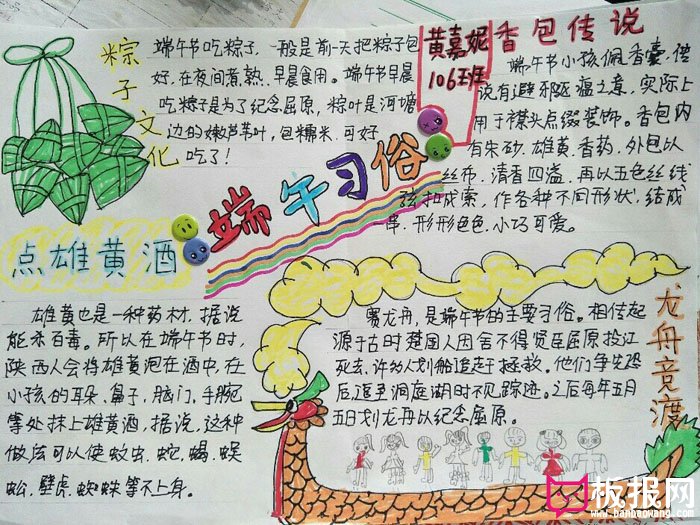 粽子文化
端午节吃粽子，一般是前一天把粽子包
好，在夜间煮熟，早晨食用。端午节早晨
吃粽子是为了纪念屈原，粽叶是河塘
边的嫩芦苇叶，包糯米，可好
吃了！
黄嘉妮
106班
香包传说
端午节小孩佩香囊，传
说有避邪驱瘟之意，实际上
用于襟头点缀装饰。香包内
有朱砂、雄黄、香药，外包以
丝布，清香四溢，再以五色丝线
弦扣成索，作各种不同形状，结成
一串，形形色色，小巧可爱。
端午习俗
点雄黄酒
雄黄也是一种药材，据说
能杀百毒。所以在端午节时，
陕西人会将雄黄泡在酒中，在
小孩的耳朵、鼻子、脑门、手腕
等处抹上雄黄酒，据说，这种
做法可以使蚊虫、蛇、蝎、蜈
蚣、壁虎、蜘蛛等不上身。
龙舟竞渡
赛龙舟，是端午节的主要习俗。相传起
源于古时楚国人因舍不得贤臣屈原投江
死去，许多人划船追赶拯救。他们争先恐
后，追至洞庭湖时不见踪迹。之后每年五月
五日划龙舟以纪念屈原。
板报网
www.banbaowang.com